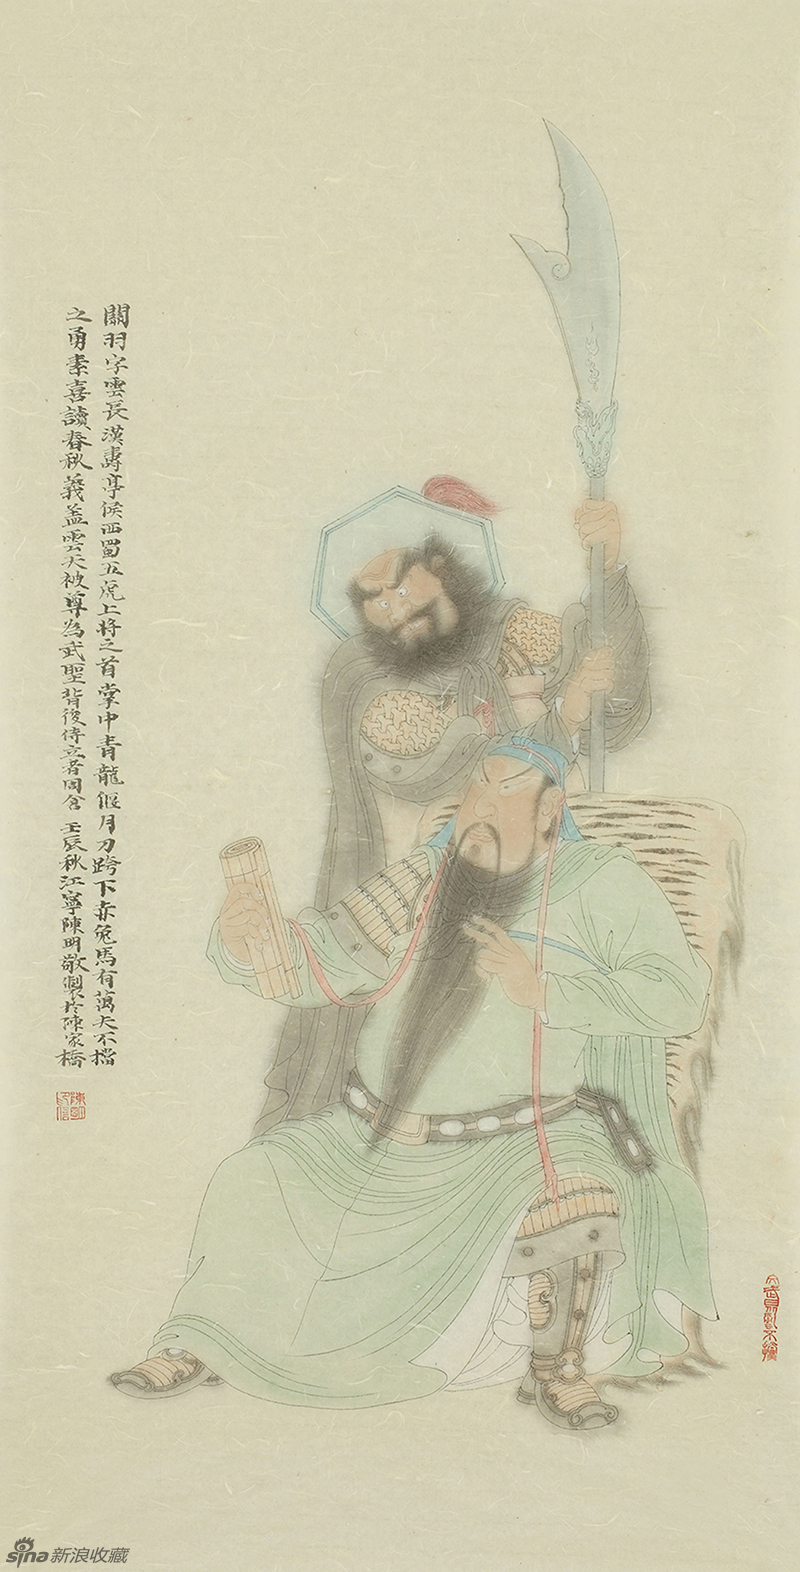 關羽字雲長漢壽亭侯西蜀五虎上將之首掌中青龍偃月刀跨下赤兔馬有萬夫不擋
之勇素喜讀春秋義盖雲天被尊為武聖背後侍立者周倉 壬辰秋江寧陳明敬製於陳家橋
sina新浪收藏